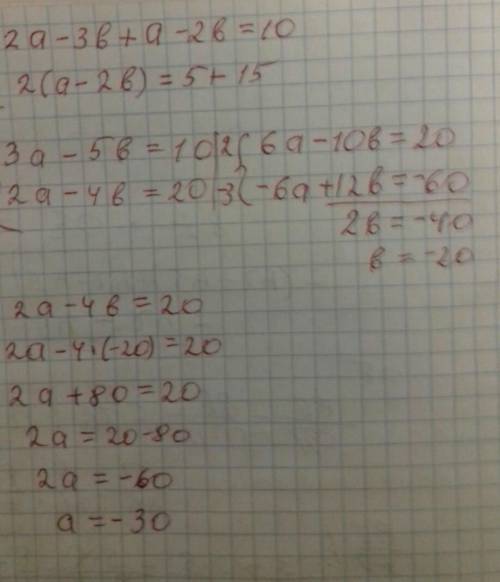 2a-3b+a-2b=10
2(a-2b)=5+15
3a-5b=10|2 { 6a-10b=20
2a-4b=20|-3 { -6a+12b=-60
2b=-40
b=-20
2a-4b=20
2a-4·(-20)=20
2a+80=20
2a=20-80
2a=-60
a=-30